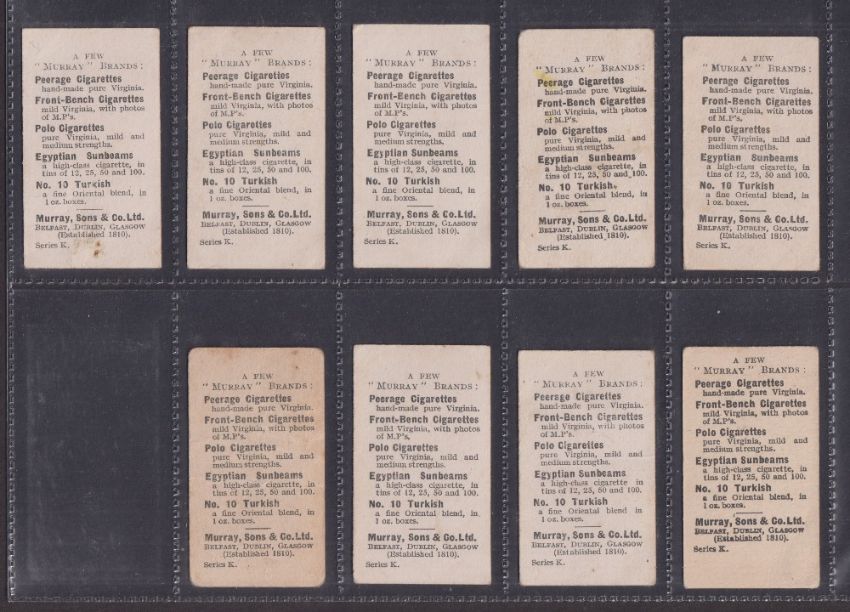 A FEW
"MURRAY" BRANDS:
Peerage Cigarettes
hand-made pure Virginia.
Front-Bench Cigarettes
mild Virginia, with photos
of M.P's.
Polo Cigarettes
pure Virginia, mild and
medium strengths.
Egyptian Sunbeams
a high-class cigarette, in
tins of 12, 25, 50 and 100.
No. 10 Turkish
a fine Oriental blend, in
1 oz. boxes.
Murray, Sons & Co. Ltd.
BELFAST, DUBLIN, GLASGOW
(Established 1810).
Series K.
A FEW
"MURRAY" BRANDS:
Peerage Cigarettes
hand-made pure Virginia.
Front-Bench Cigarettes
mild Virginia, with photos
of M.P's.
Polo Cigarettes
pure Virginia, mild and
medium strengths.
Egyptian Sunbeams
a high-class cigarette, in
tins of 12, 25, 50 and 100.
No. 10 Turkish
a fine Oriental blend, in
1 oz. boxes.
Murray, Sons & Co. Ltd.
BELFAST, DUBLIN, GLASGOW
(Established 1810).
Series K.
A FEW
"MURRAY" BRANDS:
Peerage Cigarettes
hand-made pure Virginia.
Front-Bench Cigarettes
mild Virginia, with photos
of M.P's.
Polo Cigarettes
pure Virginia, mild and
medium strengths.
Egyptian Sunbeams
a high-class cigarette, in
tins of 12, 25, 50 and 100.
No. 10 Turkish
a fine Oriental blend, in
1 oz. boxes.
Murray, Sons & Co. Ltd.
BELFAST, DUBLIN, GLASGOW
(Established 1810).
Series K.
A FEW
"MURRAY" BRANDS:
Peerage Cigarettes
hand-made pure Virginia.
Front-Bench Cigarettes
mild Virginia, with photos
of M.P's.
Polo Cigarettes
pure Virginia, mild and
medium strengths.
Egyptian Sunbeams
a high-class cigarette, in
tins of 12, 25, 50 and 100.
No. 10 Turkish
a fine Oriental blend, in
1 oz. boxes.
Murray, Sons & Co. Ltd.
BELFAST, DUBLIN, GLASGOW
(Established 1810).
Series K.
A FEW
"MURRAY" BRANDS:
Peerage Cigarettes
hand-made pure Virginia.
Front-Bench Cigarettes
mild Virginia, with photos
of M.P's.
Polo Cigarettes
pure Virginia, mild and
medium strengths.
Egyptian Sunbeams
a high-class cigarette, in
tins of 12, 25, 50 and 100.
No. 10 Turkish
a fine Oriental blend, in
1 oz. boxes.
Murray, Sons & Co. Ltd.
BELFAST, DUBLIN, GLASGOW
(Established 1810).
Series K.
A FEW
"MURRAY" BRANDS:
Peerage Cigarettes
hand-made pure Virginia.
Front-Bench Cigarettes
mild Virginia, with photos
of M.P's.
Polo Cigarettes
pure Virginia, mild and
medium strengths.
Egyptian Sunbeams
a high-class cigarette, in
tins of 12, 25, 50 and 100.
No. 10 Turkish
a fine Oriental blend, in
1 oz. boxes.
Murray, Sons & Co. Ltd.
BELFAST, DUBLIN, GLASGOW
(Established 1810).
Series K.
A FEW
"MURRAY" BRANDS:
Peerage Cigarettes
hand-made pure Virginia.
Front-Bench Cigarettes
mild Virginia, with photos
of M.P's.
Polo Cigarettes
pure Virginia, mild and
medium strengths.
Egyptian Sunbeams
a high-class cigarette, in
tins of 12, 25, 50 and 100.
No. 10 Turkish
a fine Oriental blend, in
1 oz. boxes.
Murray, Sons & Co. Ltd.
BELFAST, DUBLIN, GLASGOW
(Established 1810).
Series K.
A FEW
"MURRAY" BRANDS:
Peerage Cigarettes
hand-made pure Virginia.
Front-Bench Cigarettes
mild Virginia, with photos
of M.P's.
Polo Cigarettes
pure Virginia, mild and
medium strengths.
Egyptian Sunbeams
a high-class cigarette, in
tins of 12, 25, 50 and 100.
No. 10 Turkish
a fine Oriental blend, in
1 oz. boxes.
Murray, Sons & Co. Ltd.
BELFAST, DUBLIN, GLASGOW
(Established 1810).
Series K.
A FEW
"MURRAY" BRANDS:
Peerage Cigarettes
hand-made pure Virginia.
Front-Bench Cigarettes
mild Virginia, with photos
of M.P's.
Polo Cigarettes
pure Virginia, mild and
medium strengths.
Egyptian Sunbeams
a high-class cigarette, in
tins of 12, 25, 50 and 100.
No. 10 Turkish
a fine Oriental blend, in
1 oz. boxes.
Murray, Sons & Co. Ltd.
BELFAST, DUBLIN, GLASGOW
(Established 1810).
Series K.